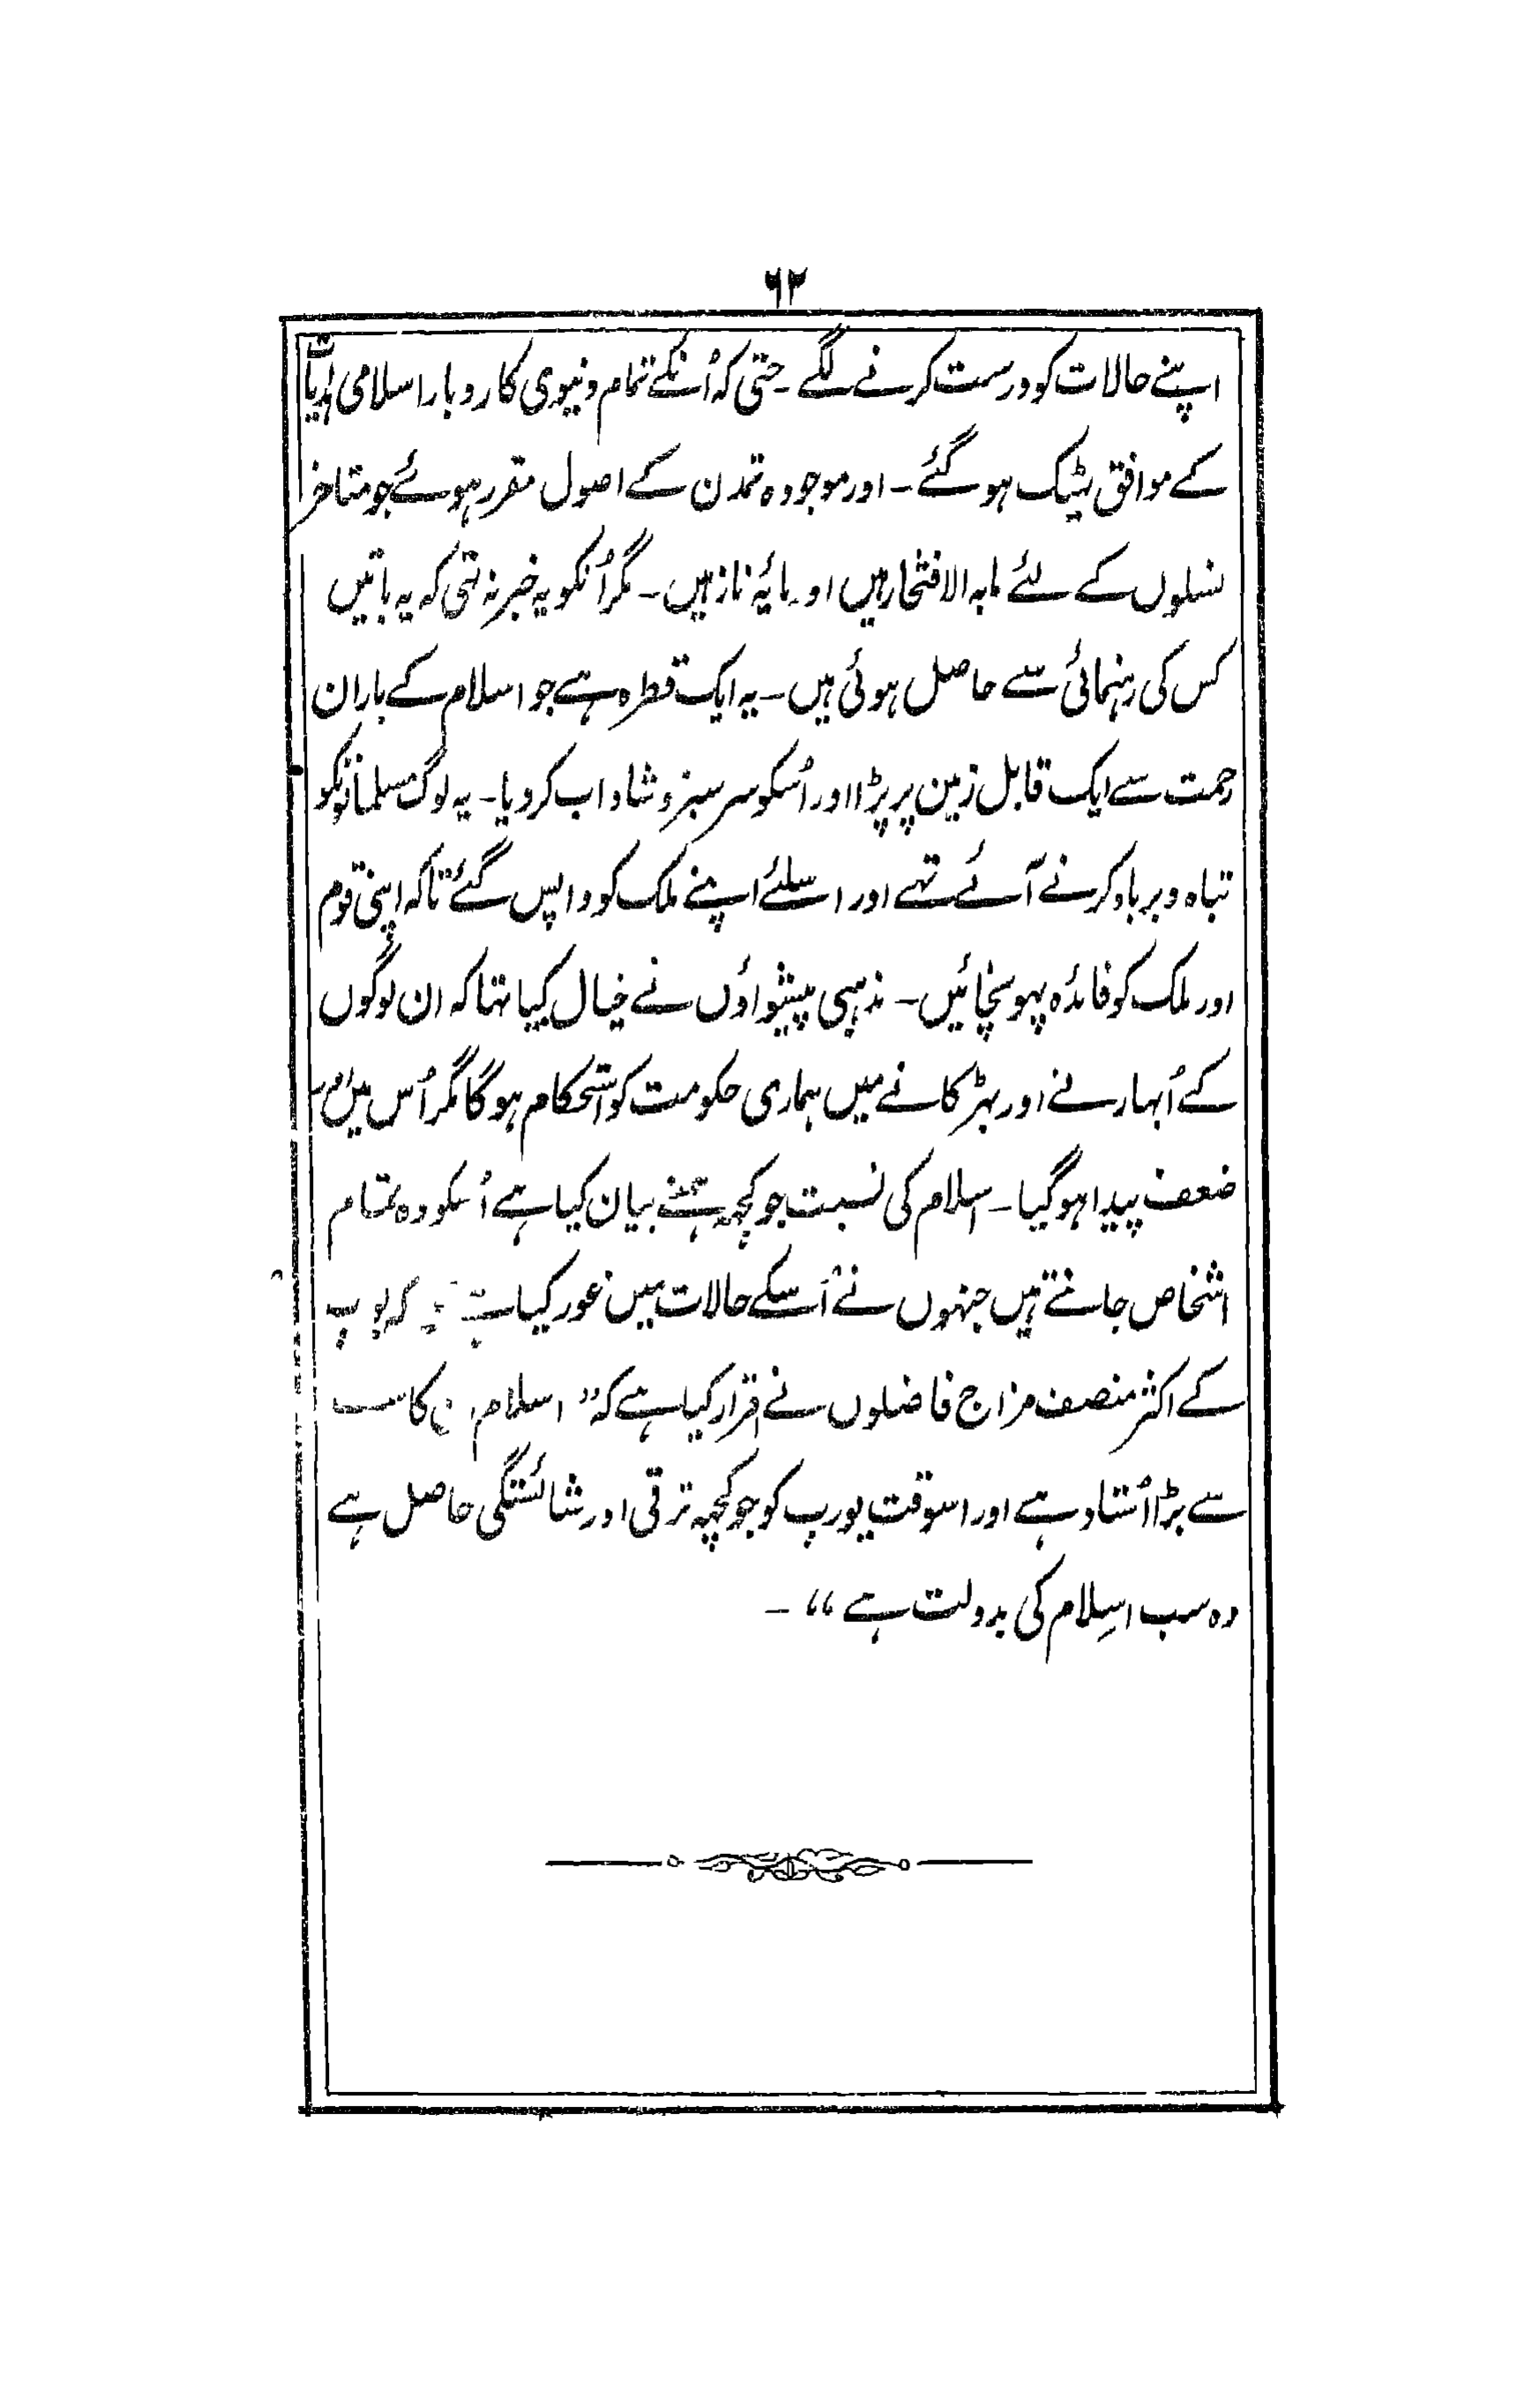 ۶۲
اپنے حالات کو درست کرنے لگے ۔ حتی کہ اُنکے تمام دنیوی کاروبار اسلامی ہدایات
کے موافق ٹہیک ہو گئے ۔ اور موجودہ تمدن کے اصول مقرر ہوئے جو متاخر
نسلوں کے لئے مابہ الافتخار ہیں اور مایۂ ناز ہیں ۔ مگر اُنکو یہ خبر نہ تہی کہ یہ باتیں
کس کی رہنمائی سے حاصل ہوئی ہیں ۔ یہ ایک قطرہ ہے جو اسلام کے باران
رحمت سے ایک قابل زمین پر پڑا اور اُسکو سرسبز و شاداب کردیا ۔ یہ لوگ مسلمانونکو
تباہ و برباد کرنے آئے تہے اور اسلئے اپنے ملک کو واپس گئے تاکہ اپنی قوم
اور ملک کو فائدہ پہونچائیں ۔ مذہبی پیشواؤں نے خیال کیا تہا کہ ان لوگوں
کے اُبہارنے اور بہڑکانے میں ہماری حکومت کو استحکام ہوگا مگر اُس میں
ضعف پیدا ہوگیا ۔ اسلام کی نسبت جو کچہہ ہمنے بیان کیا ہے اُسکو وہ تمام
اشخاص جانتے ہیں جنہوں نے اُسکے حالات میں غور کیا ہے کہ یورپ
کے اکثر منصف مزاج فاضلوں نے اقرار کیا ہے کہ ” اسلام کا سب
سے بڑا اُستاد ہے اور اسوقت یورپ کو جو کچہہ ترقی اور شائستگی حاصل ہے
وہ سب اسِلام کی بدولت ہے ،، ۔